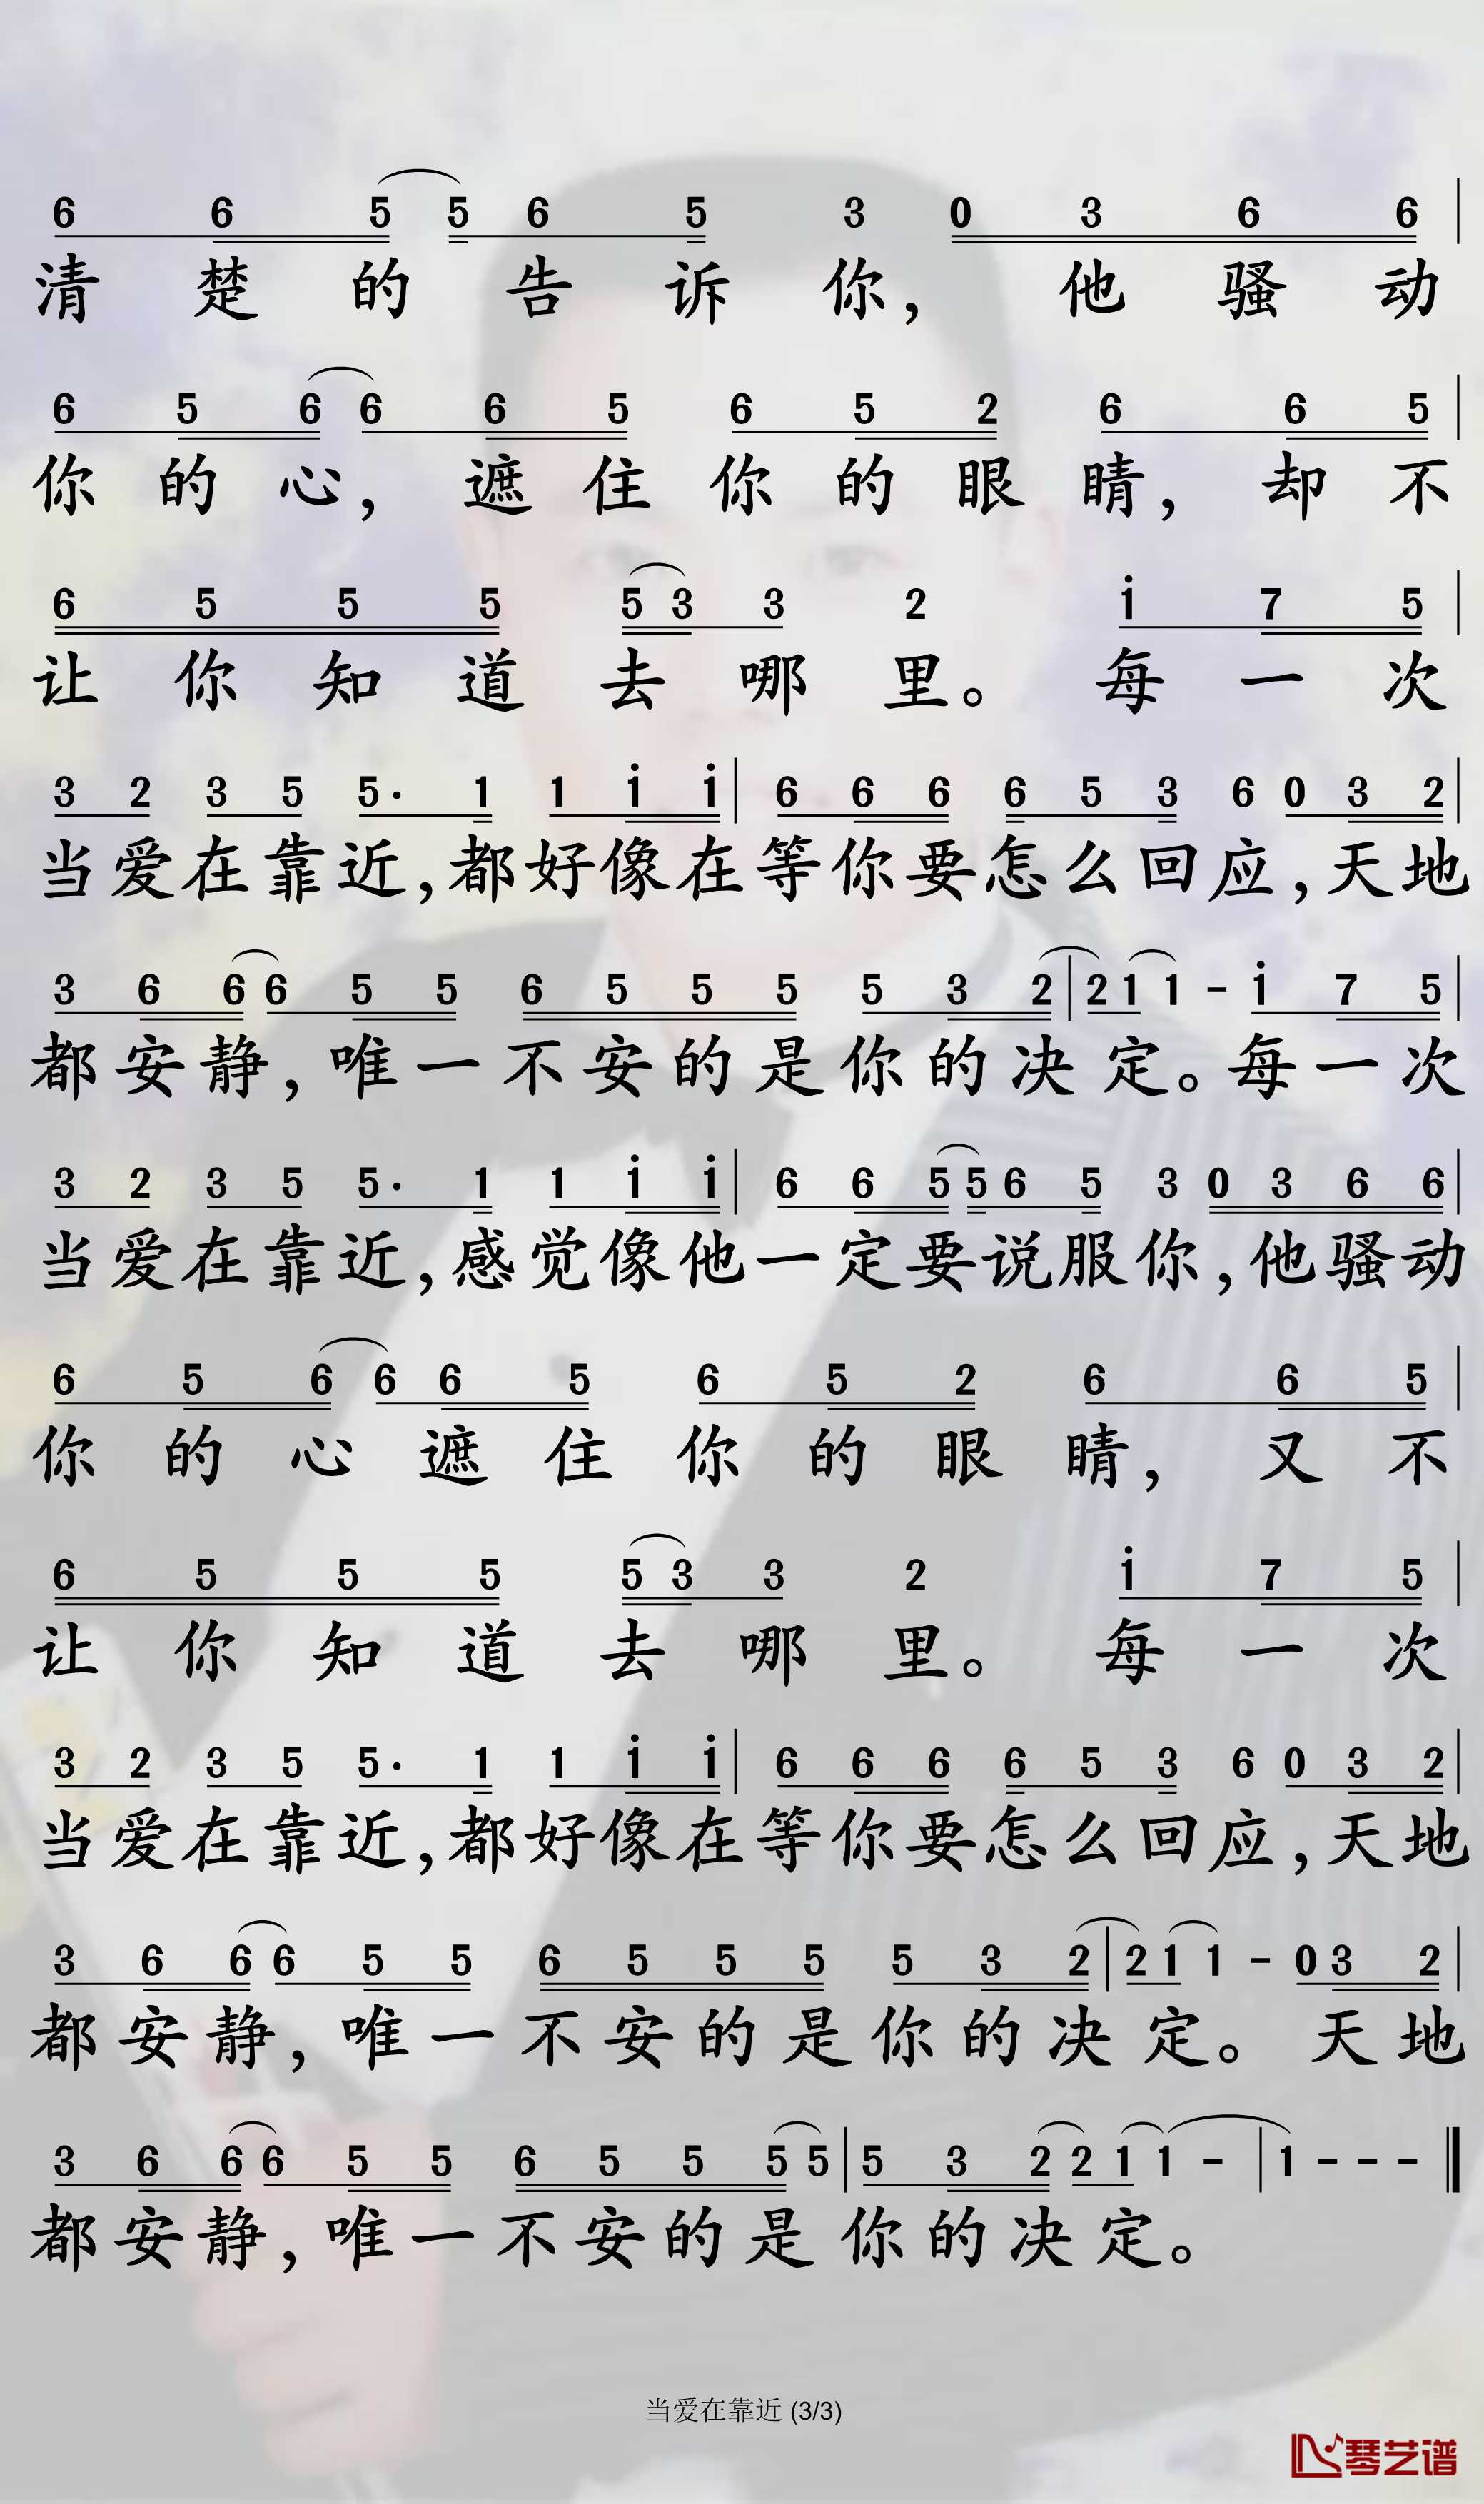 6 6 5 5 6 5 3 0 3 6 6 |
清楚的告诉你，他骚动
6 5 6 6 6 5 6 5 2 6 6 5 |
你的心，遮住你的眼睛，却不
6 5 5 5 5 3 3 2 i 7 5 |
让你知道去哪里。每一次
3 2 3 5 5· 1 1 i i | 6 6 6 6 5 3 6 0 3 2 |
当爱在靠近，都好像在等你要怎么回应，天地
3 6 6 6 5 5 6 5 5 5 5 3 2 | 2 1 1 - i 7 5 |
都安静，唯一不安的是你的决定。每一次
3 2 3 5 5· 1 1 i i | 6 6 5 5 6 5 3 0 3 6 6 |
当爱在靠近，感觉像他一定要说服你，他骚动
6 5 6 6 6 5 6 5 2 6 6 5 |
你的心遮住你的眼睛，又不
6 5 5 5 5 3 3 2 i 7 5 |
让你知道去哪里。每一次
3 2 3 5 5· 1 1 i i | 6 6 6 6 5 3 6 0 3 2 |
当爱在靠近，都好像在等你要怎么回应，天地
3 6 6 6 5 5 6 5 5 5 5 3 2 | 2 1 1 - 0 3 2 |
都安静，唯一不安的是你的决定。天地
3 6 6 6 5 5 6 5 5 5 5 | 5 3 2 2 1 1 - | 1 - - - ‖
都安静，唯一不安的是你的决定。
当爱在靠近 (3/3)
琴艺谱